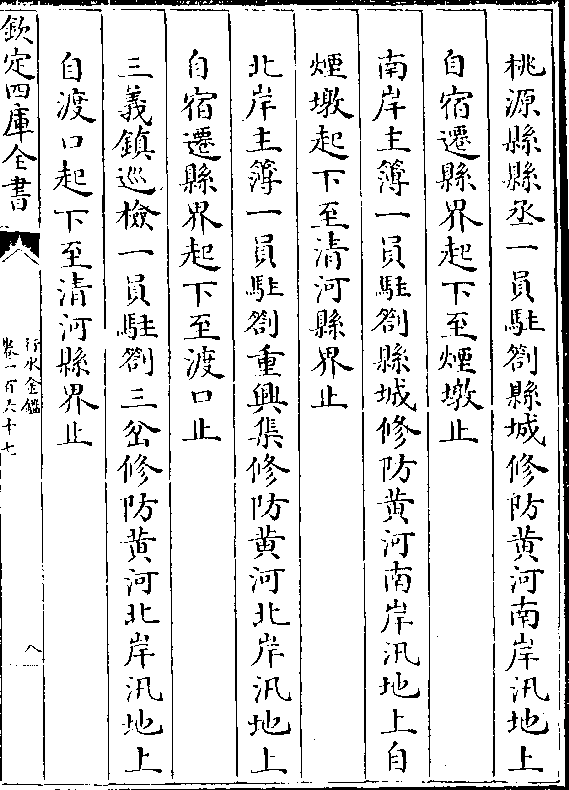 桃源縣縣丞一員駐劄縣城修防黄河南岸汛地上
自宿遷縣界起下至煙墩止
南岸主簿一員駐劄縣城修防黄河南岸汛地上自
煙墩起下至清河縣界止
北岸主簿一員駐劄重興集修防黄河北岸汛地上
自宿遷縣界起下至渡口止
三義鎮巡檢一員駐劄三岔修防黄河北岸汛地上
自渡口起下至清河縣界止
欽定四庫全書
行水金鑑
卷一百六十七
八